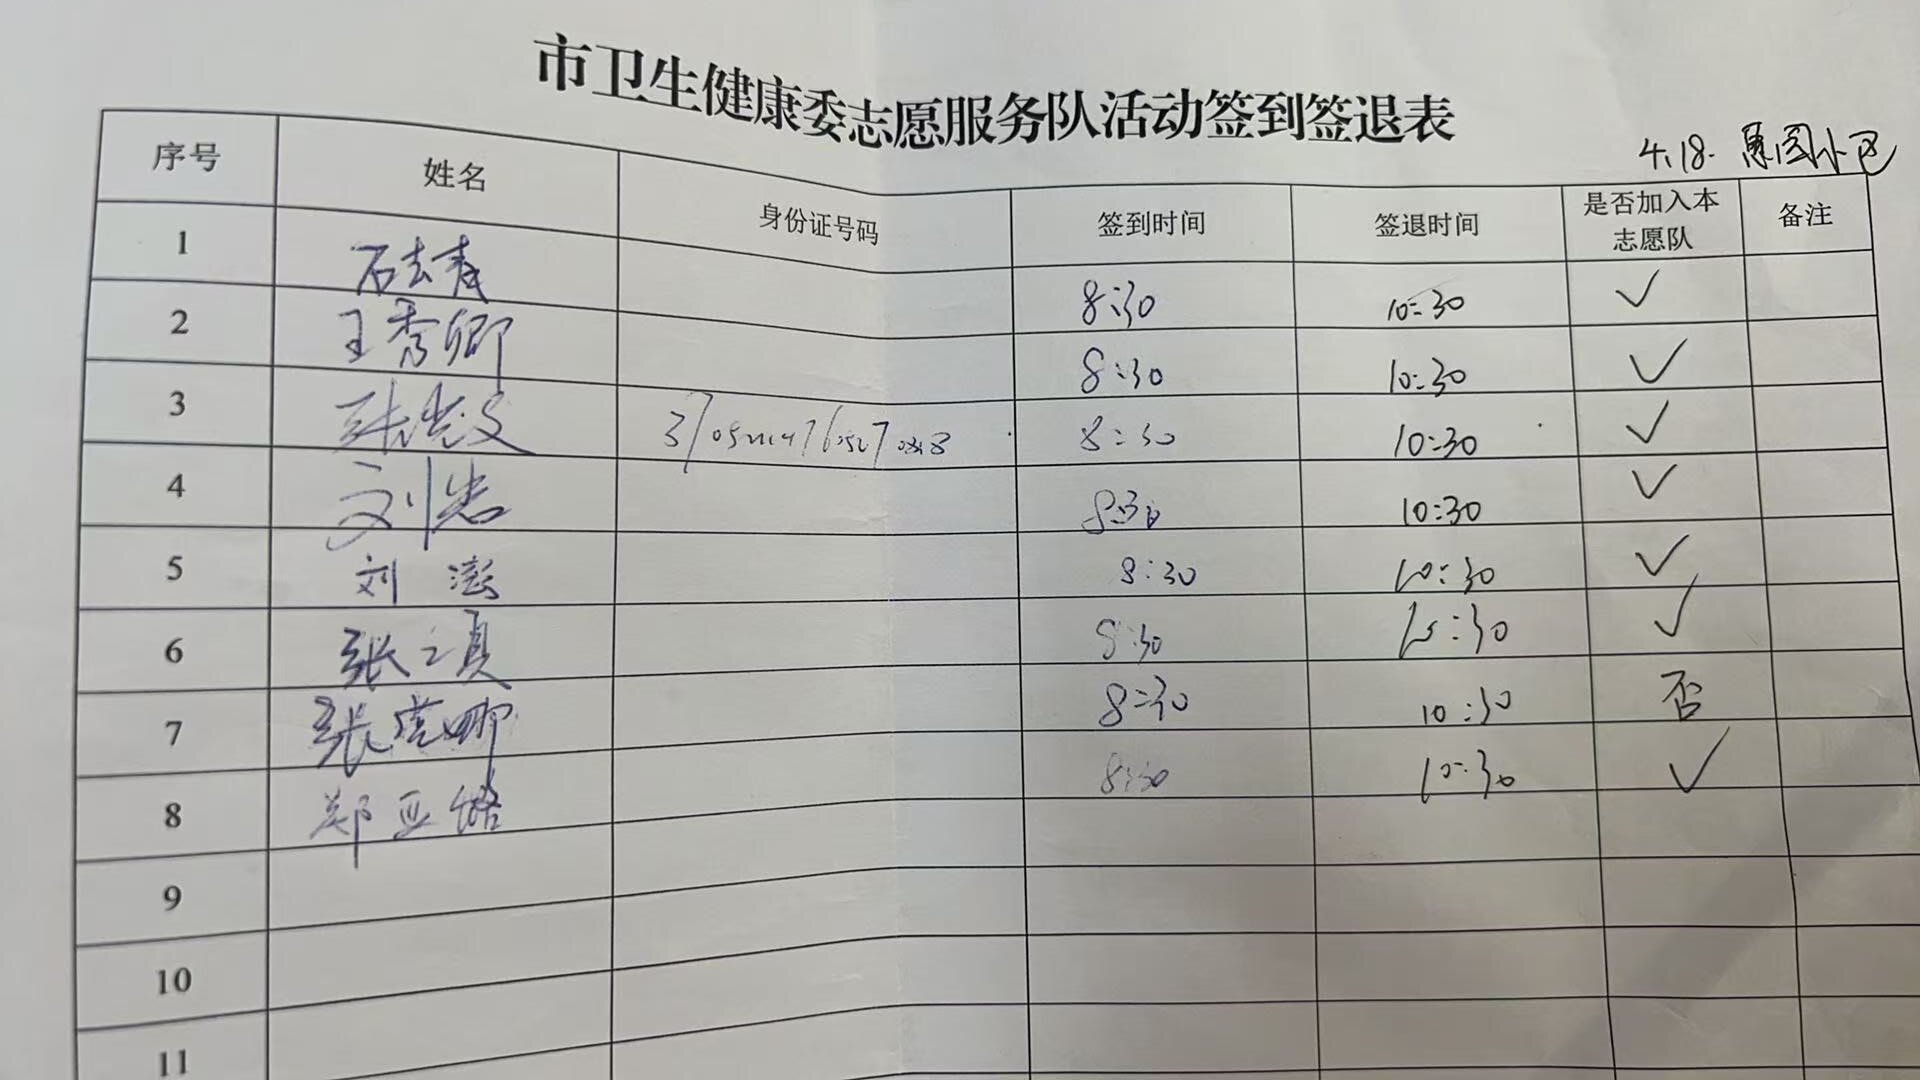 市卫生健康委志愿服务队活动签到签退表
4.18. 惠园小区
序号 姓名 身份证号码 签到时间 签退时间 是否加入本志愿队 备注
1 石志青 8:30 10:30 ✓
2 王秀卿 8:30 10:30 ✓
3 8:30 10:30 ✓
4 刘岩 8:30 10:30 ✓
5 刘澎 8:30 10:30 ✓
6 张 8:30 10:30 ✓
7 张 娜 8:30 10:30 否
8 郑亚 8:30 10:30 ✓
9
10
11